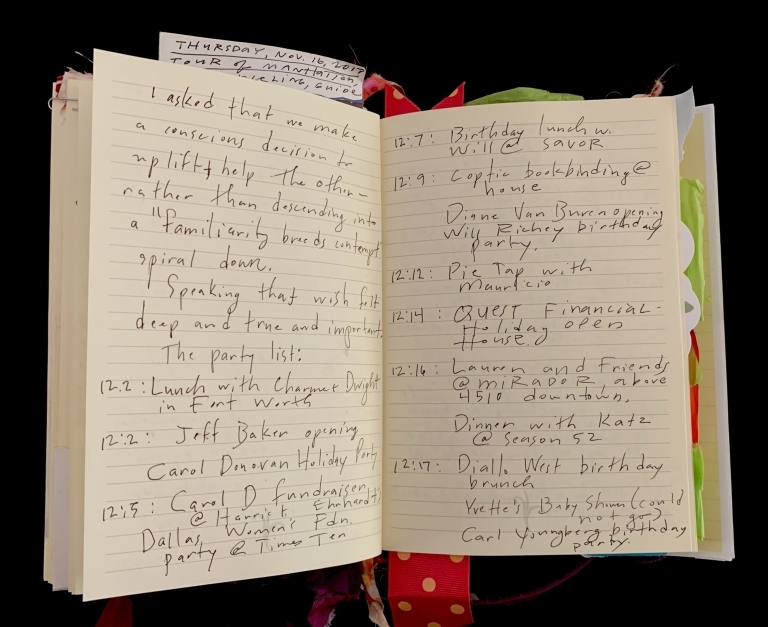 THURSDAY, NOV. 16, 2017
TOUR OF MANHATTAN,
GUIDE
I asked that we make
a conscious decision to
uplift & help the other –
rather than descending into
a "familiarity breeds contempt"
spiral down.
Speaking that wish felt
deep and true and important.
The party list:
12.2: Lunch with Charme & Dwight
in Fort Worth
12:2: Jeff Baker opening
Carol Donovan Holiday Party
12:5: Carol D fundraiser
@ Harriet Ehrhardt's
Dallas Women's Fdn.
party @ Times Ten
12:7: Birthday lunch w.
Will @ SAVOR
12:9: Coptic bookbinding @
house
Diane Van Buren opening
Will Richey birthday
party.
12:12: Pie Tap with
Mauricio
12:14: QUEST FINANCIAL –
Holiday open
House.
12:16: Lauren and Friends
@ MIRADOR, above
4510 downtown.
Dinner with Katz
@ Season 52
12:17: Diallo West birthday
brunch
Yvette's Baby Shower (could
not go)
Carl Youngberg birthday
party.